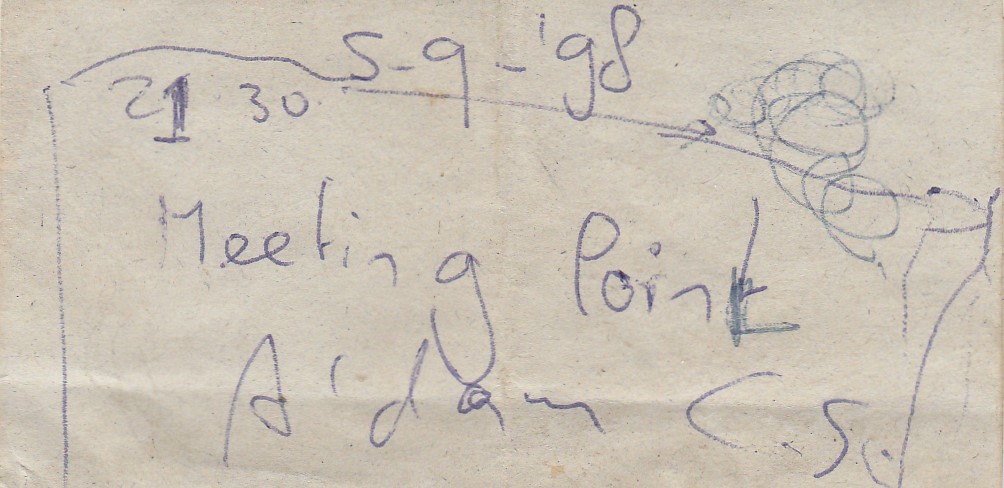 5-9-'98
21 30
Meeting Point
A'dam C.S.